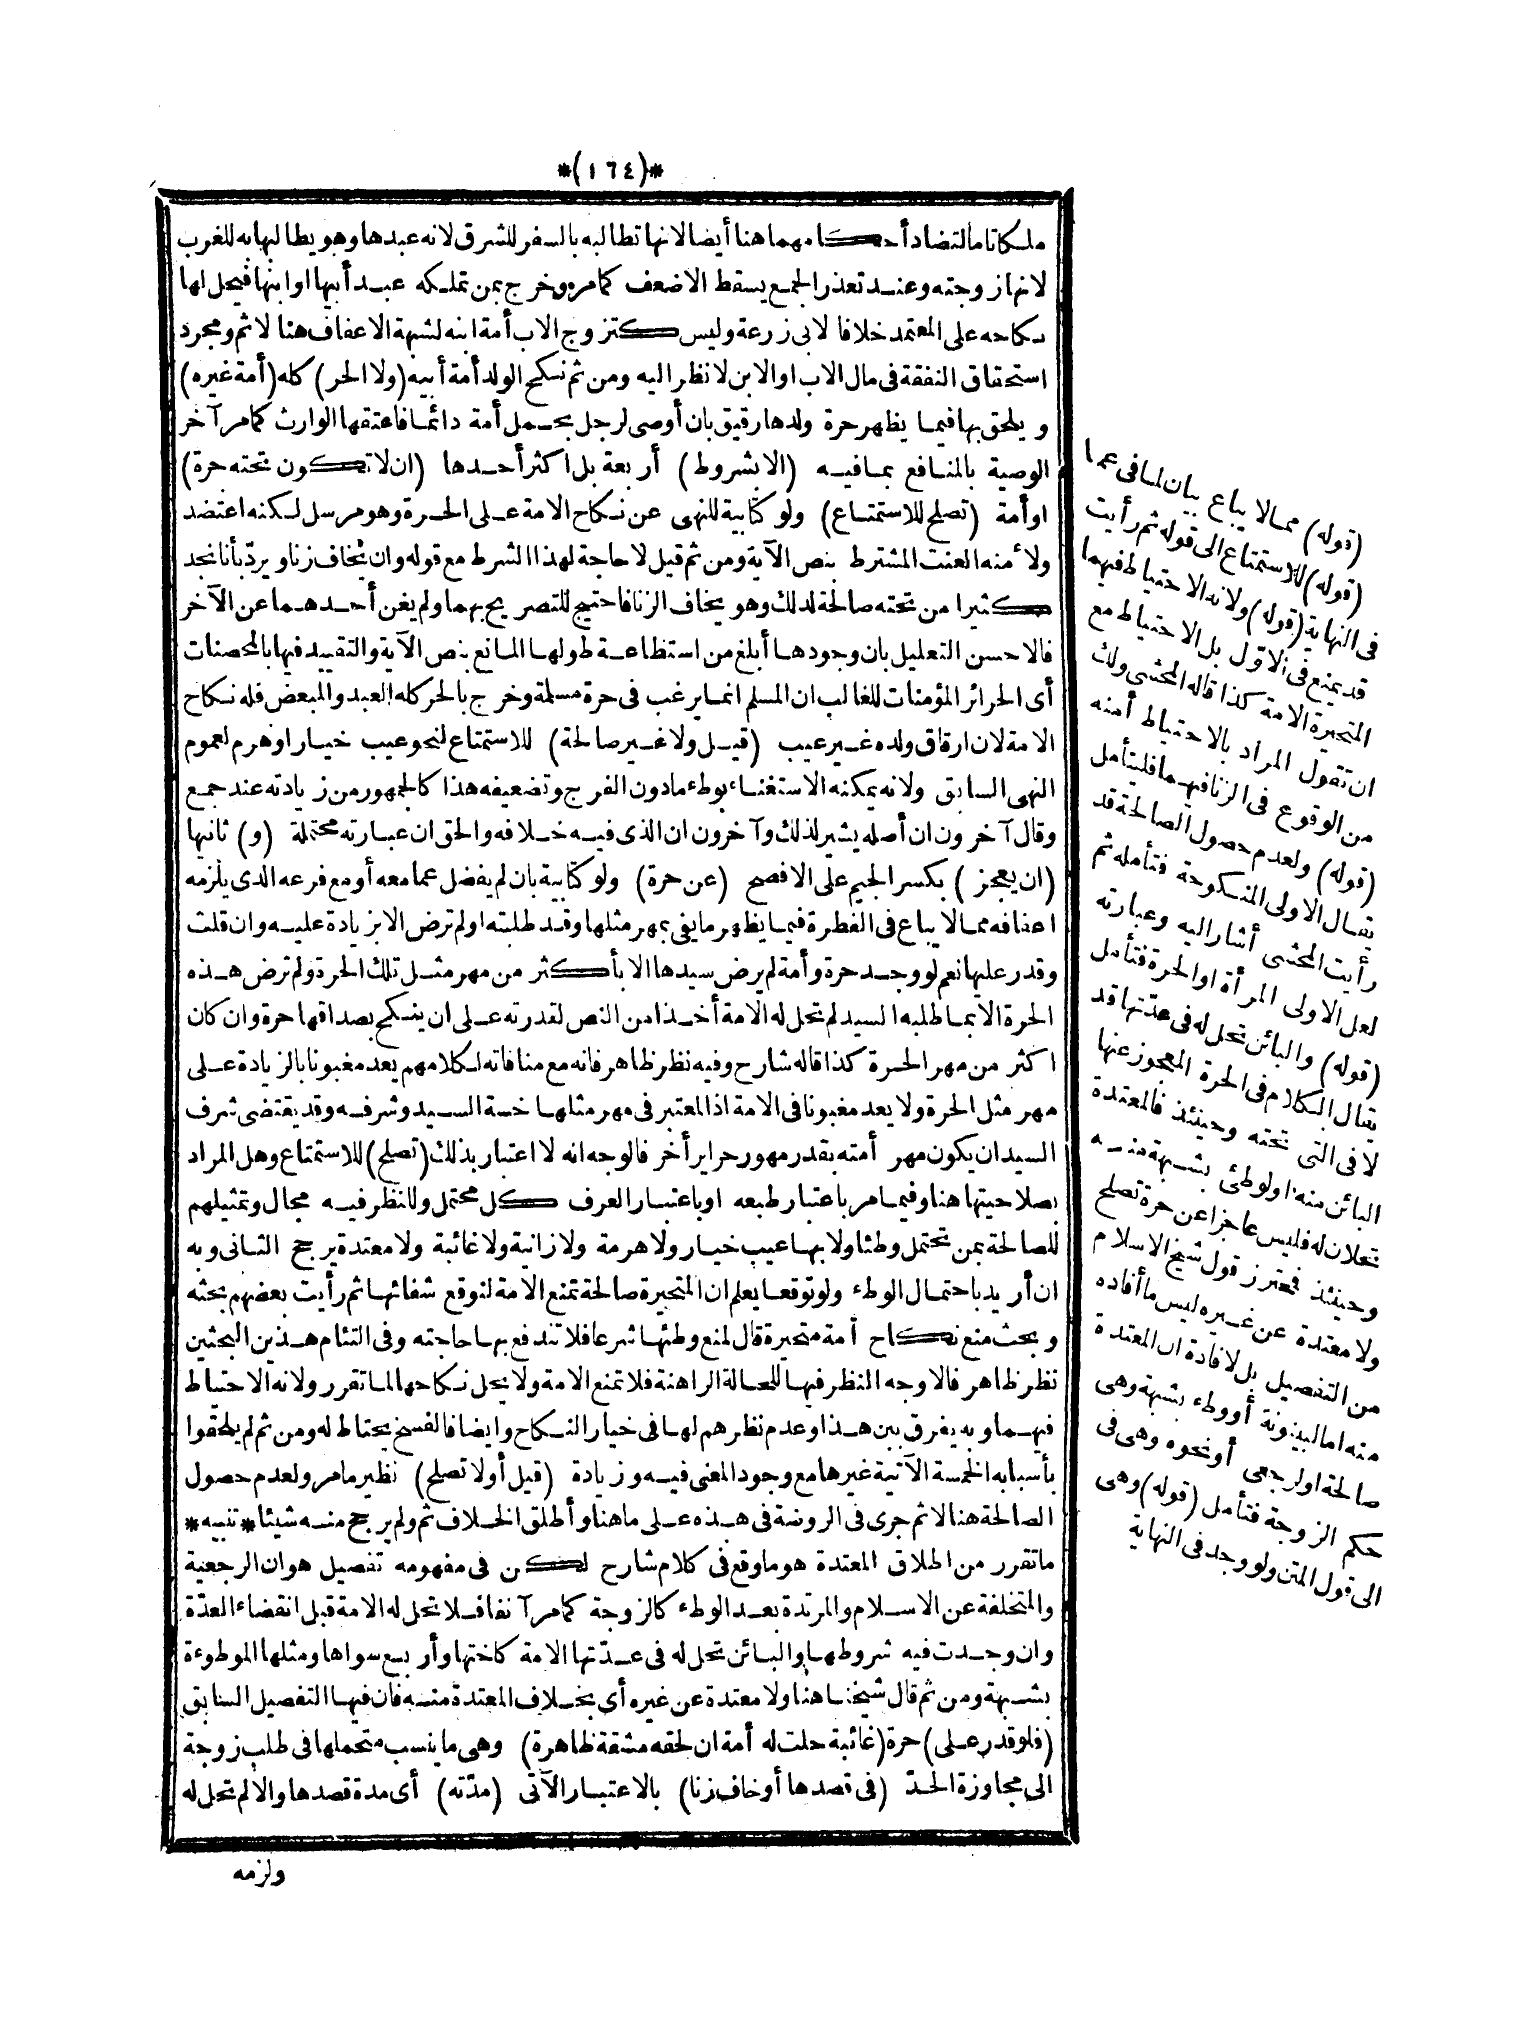 *(١٦٤)*
ملكا تاما لتضاد أحكامهما هنا أيضا لانها تطالبه بالسفر للشرق لانه عبدها وهو يطالبها به للغرب
لانها زوجته وعند تعذر الجمع يسقط الاضعف كما مر وخرج بمن تملكه عبد أبيها او ابنها فيحل لها
نكاحه على المعتمد خلافا لابى زرعة وليس كتزوج الاب أمة ابنه لشبهة الاعفاف هنا لا ثم ومجرد
استحقاق النفقة فى مال الاب او الابن لا نظر اليه ومن ثم نكح الولد أمة أبيه (ولا الحر) كله (أمة غيره)
ويلحق بها فيما يظهر حرة ولدها رقيق بان أوصى لرجل بحمل أمة دائما فاعتقها الوارث كما مر آخر
الوصية بالمنافع بما فيه (الا بشروط) أربعة بل اكثر أحدها (ان لا تكون تحته حرة)
او أمة (تصلح للاستمتاع) ولو كتابية للنهى عن نكاح الامة على الحرة وهو مرسل لكنه اعتضد
ولأمنه العنت المشترط بنص الآية ومن ثم قيل لا حاجة لهذا الشرط مع قوله وان يخاف زنا ويردّ بأنا نجد
كثيرا من تحته صالحة لذلك وهو يخاف الزنا فاحتيج للتصريح بهما ولم يغن أحدهما عن الآخر
فالاحسن التعليل بان وجودها أبلغ من استطاعة طولها المانع بنص الآية والتقييد فيها بالمحصنات
أى الحرائر المؤمنات للغالب ان المسلم انما يرغب فى حرة مسلمة وخرج بالحر كله العبد والمبعض فله نكاح
الامة لان ارقاق ولده غير عيب (قيل ولا غير صالحة) للاستمتاع لنحو عيب خيار او هرم لعموم
النهى السابق ولانه يمكنه الاستغناء بوطء مادون الفرج وتضعيفه هذا كالجمهور من زيادته عند جمع
وقال آخرون ان أصله يشير لذلك وآخرون ان الذى فيه خلافه والحق ان عبارته محتملة (و) ثانيها
(ان يعجز) بكسر الجيم على الافصح (عن حرة) ولو كتابية بان لم يفضل عما معه أو مع فرعه الذى يلزمه
اعفافه مما لا يباع فى الفطرة فيما يظهر ما يفى بمهر مثلها وقد طلبته او لم ترض الا بزيادة عليه وان قلت
وقدر عليها نعم لو وجد حرة وأمة لم يرض سيدها الا بأكثر من مهر مثل تلك الحرة ولم ترض هذه
الحرة الا بما طلبه السيد لم تحل له الامة أخذا من النص لقدرته على ان ينكح بصداقها حرة وان كان
اكثر من مهر الحرة كذا قاله شارح وفيه نظر ظاهر فانه مع منافاته لكلامهم يعد مغبونا بالزيادة على
مهر مثل الحرة ولا يعد مغبونا فى الامة اذ المعتبر فى مهر مثلها خسة السيد وشرفه وقد يقتضى شرف
السيد ان يكون مهر أمته بقدر مهور حراير أخر فالوجه انه لا اعتبار بذلك (تصلح) للاستمتاع وهل المراد
بصلاحيتها هنا وفيما مر باعتبار طبعه او باعتبار العرف كل محتمل وللنظر فيه مجال وتمثيلهم
للصالحة بمن تحتمل وطئا ولا بها عيب خيار ولا هرمة ولا زانية ولا غائبة ولا معتدة يرجح الثانى وبه
ان أريد باحتمال الوطء ولو توقعا يعلم ان المتحيرة صالحة تمنع الامة لتوقع شفائها ثم رأيت بعضهم بحثه
وبحث منع نكاح أمة متحيرة قال لمنع وطئها شرعا فلا تندفع بها حاجته وفى التئام هذين البحثين
نظر ظاهر فالاوجه النظر فيها للحالة الراهنة فلا تمنع الامة ولا يحل نكاحها لما تقرر ولانه الاحتياط
فيهما وبه يفرق بين هذا وعدم نظرهم لها فى خيار النكاح وايضا فالفسخ يحتاط له ومن ثم لم يلحقوا
بأسبابه الخمسة الآتية غيرها مع وجود المعنى فيه وزيادة (قيل أو لا تصلح) نظير ما مر ولعدم حصول
الصالحة هنا لا ثم جرى فى الروضة فى هذه على ما هنا وأطلق الخلاف ثم ولم يرجح منه شيئا *تنبيه*
ما تقرر من اطلاق المعتدة هو ما وقع فى كلام شارح لكن فى مفهومه تفصيل هو ان الرجعية
والمتخلفة عن الاسلام والمرتدة بعد الوطء كالزوجة كما مر آنفا فلا تحل له الامة قبل انقضاء العدّة
وان وجدت فيه شروطها والبائن تحل له فى عدّتها الامة كاختها وأربع سواها ومثلها الموطوءة
بشبهة ومن ثم قال شيخنا هنا ولا معتدة عن غيره أى بخلاف المعتدة منه فان فيها التفصيل السابق
(فلو قدر على) حرة (غائبة حلت له أمة ان لحقه مشقة ظاهرة) وهى ما ينسب متحملها فى طلب زوجة
الى مجاوزة الحدّ (فى قصدها أو خاف زنا) بالاعتبار الآتى (مدّته) أى مدة قصدها والا لم تحل له
ولزمه
(قوله) مما لا يباع بيان لما فى عما
(قوله) للاستمتاع الى قوله ثم رأيت
فى النهاية (قوله) ولانه الاحتياط فيهما
قد يمنع فى الاوّل بل الاحتياط مع
المتحيرة الامة كذا قاله المحشى ولك
ان تقول المراد بالاحتياط أمنه
من الوقوع فى الزنا فيهما فليتأمل
(قوله) ولعدم حصول الصالحة قد
يقال الاولى المنكوحة فتأمله ثم
رأيت المحشى أشار اليه وعبارته
لعل الاولى المرأة او الحرة فتأمل
(قوله) والبائن تحل له فى عدّتها قد
يقال الكلام فى الحرة المعجوز عنها
لا فى التى تحته وحينئذ فالمعتدة
البائن منه او لوطئ بشبهة منه
تحلان له فليس عاجزا عن حرة تصلح
وحينئذ فمحترز قول شيخ الاسلام
ولا معتدة عن غيره ليس ما أفاده
من التفصيل بل لافادة ان المعتدة
منه اما لبينونة أو وطء بشبهة وهى
صالحة او لرجعى أو نحوه وهى فى
حكم الزوجة فتأمل (قوله) وهى
الى قول المتن ولو وجد فى النهاية